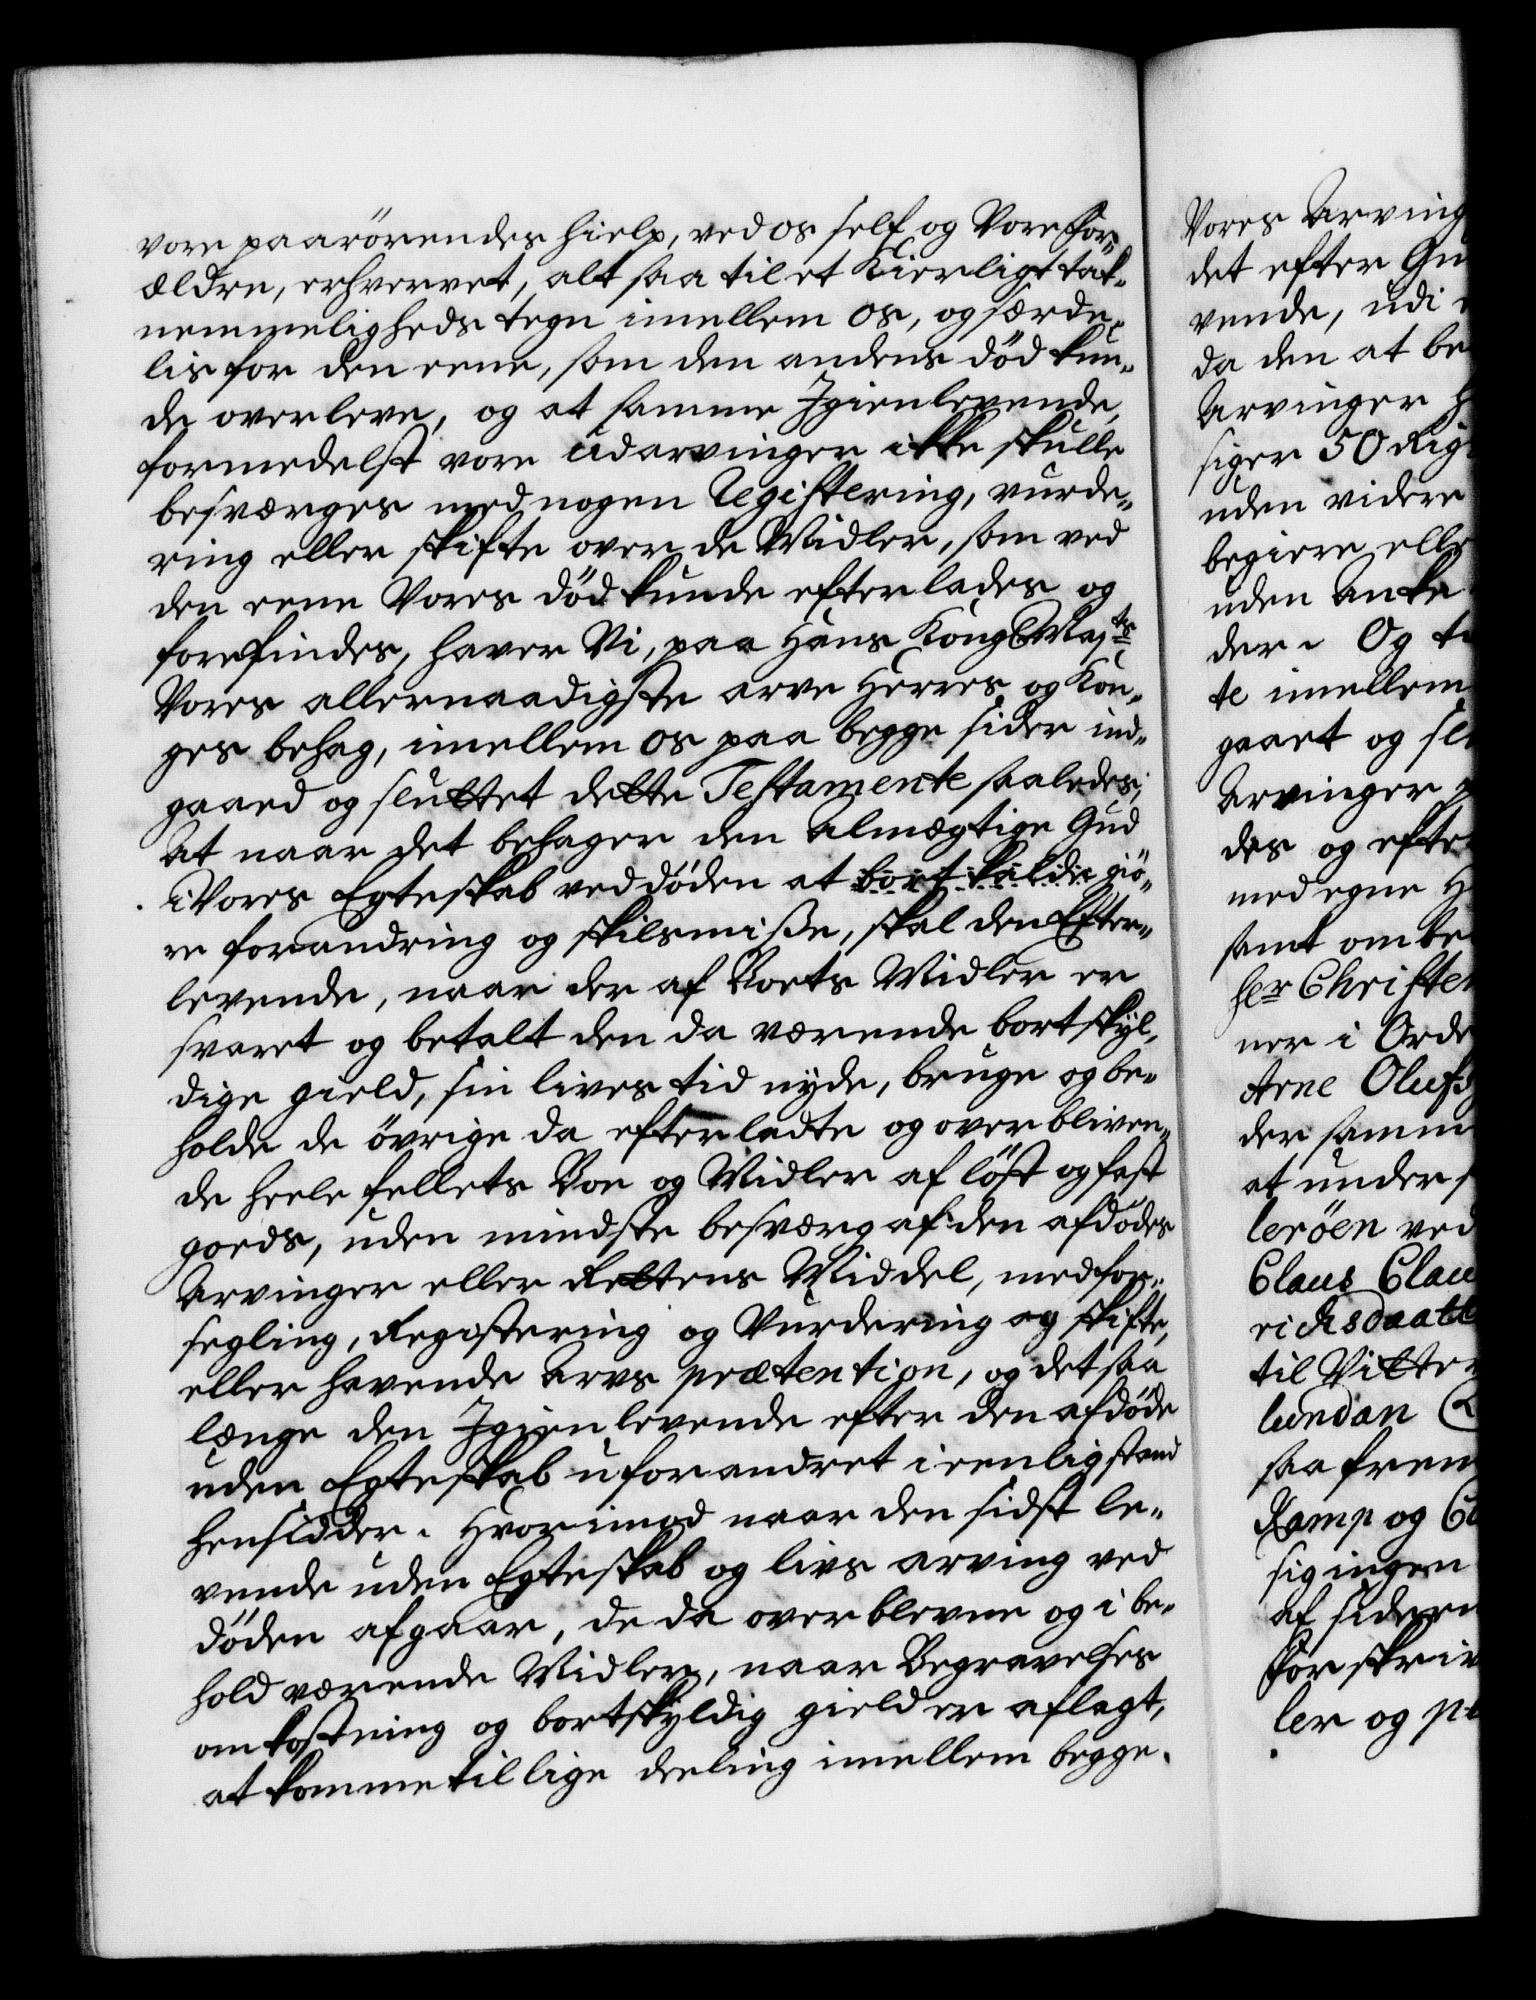 vore paarörendes hielp, ved os self og Vore for¬
ældre, erhvervet, alt saa til et Kierligt tak¬
nemmeligheds tegn imellem os, og særde¬
lis for den eene, som den andens död kun¬
de overleve, og at samme Igienlevende,
formedelst vore Udarvinger ikke skulle
besværges med nogen Registering, vurde¬
ring eller skifte over de Midler, som ved
den eene Vores död kunde efterlades og
forefindes, haver Vi, paa Hans Kongl Mayts
Vores allernaadigste arve Herres og Kon¬
ges behag, imellem os paa begge sider ind¬
gaaed og sluttet dette Testamente saaledes,
At naar det behager den Almægtige Gud
i Vores Egteskab ved döden at bortkalde giö¬
re forandring og skilsmisse, skal den Efter¬
levende, naar der af Boets Midler er
svaret og betalt den da værende bortskyl¬
dige gield, sin lives tid nyde, bruge og be¬
holde de övrige da efterladte og overbliven¬
de heele fellets Boe og Midler af löst og fast
goeds, uden mindste besværg af den afdödes
Arvinger eller Rettens Middel, med for¬
segling, Registering og Vurdering og skifte,
eller havende Arvs prætention, og det saa
længe den Igienlevende efter den afdöde
uden Egteskab uforandret i eenlig stand
hensidder. Hvorimod naar den sidst le¬
vende uden Egteskab og livs arving ved
döden afgaar, de da overblevne og i be¬
hold værende Midler, naar Begravelses
omkostning og bortskyldig gield er aflagt,
at komme til lige deeling imellem begge
Vores Arving
det efter Gu
vende, udi
da den at be
Arvinger
siger 50 Rig
uden videre
begiere elle
uden Anke
der. Og
te imellem
gaaet og sl
Arvinger
des og efte
med egne H
samt ombe
her Christe
ner i Orde
Arne Olufs
der samm
at unders
leröen ved
Claus Clau
richsdaatt
til Vitter
lundan
saa frem
Kamp og Co
sig ingen
af sidern
Forskriv
ler og p